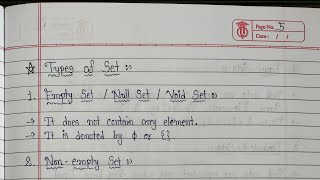 Page No. 5
Date : / /
☆ Types of Set :-
1. Empty Set / Null Set / Void Set :-
→ It does not contain any element.
→ It is denoted by ϕ or {}
2. Non-empty Set :-